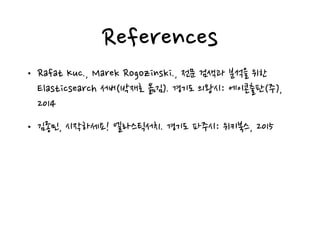 References
• Rafat Kuc., Marek Rogozinski., 전문 검색과 분석을 위한
Elasticsearch 서버(박재호 옮김). 경기도 의왕시: 에이콘출판(주),
2014
• 김종민, 시작하세요! 엘라스틱서치. 경기도 파주시: 위키북스, 2015